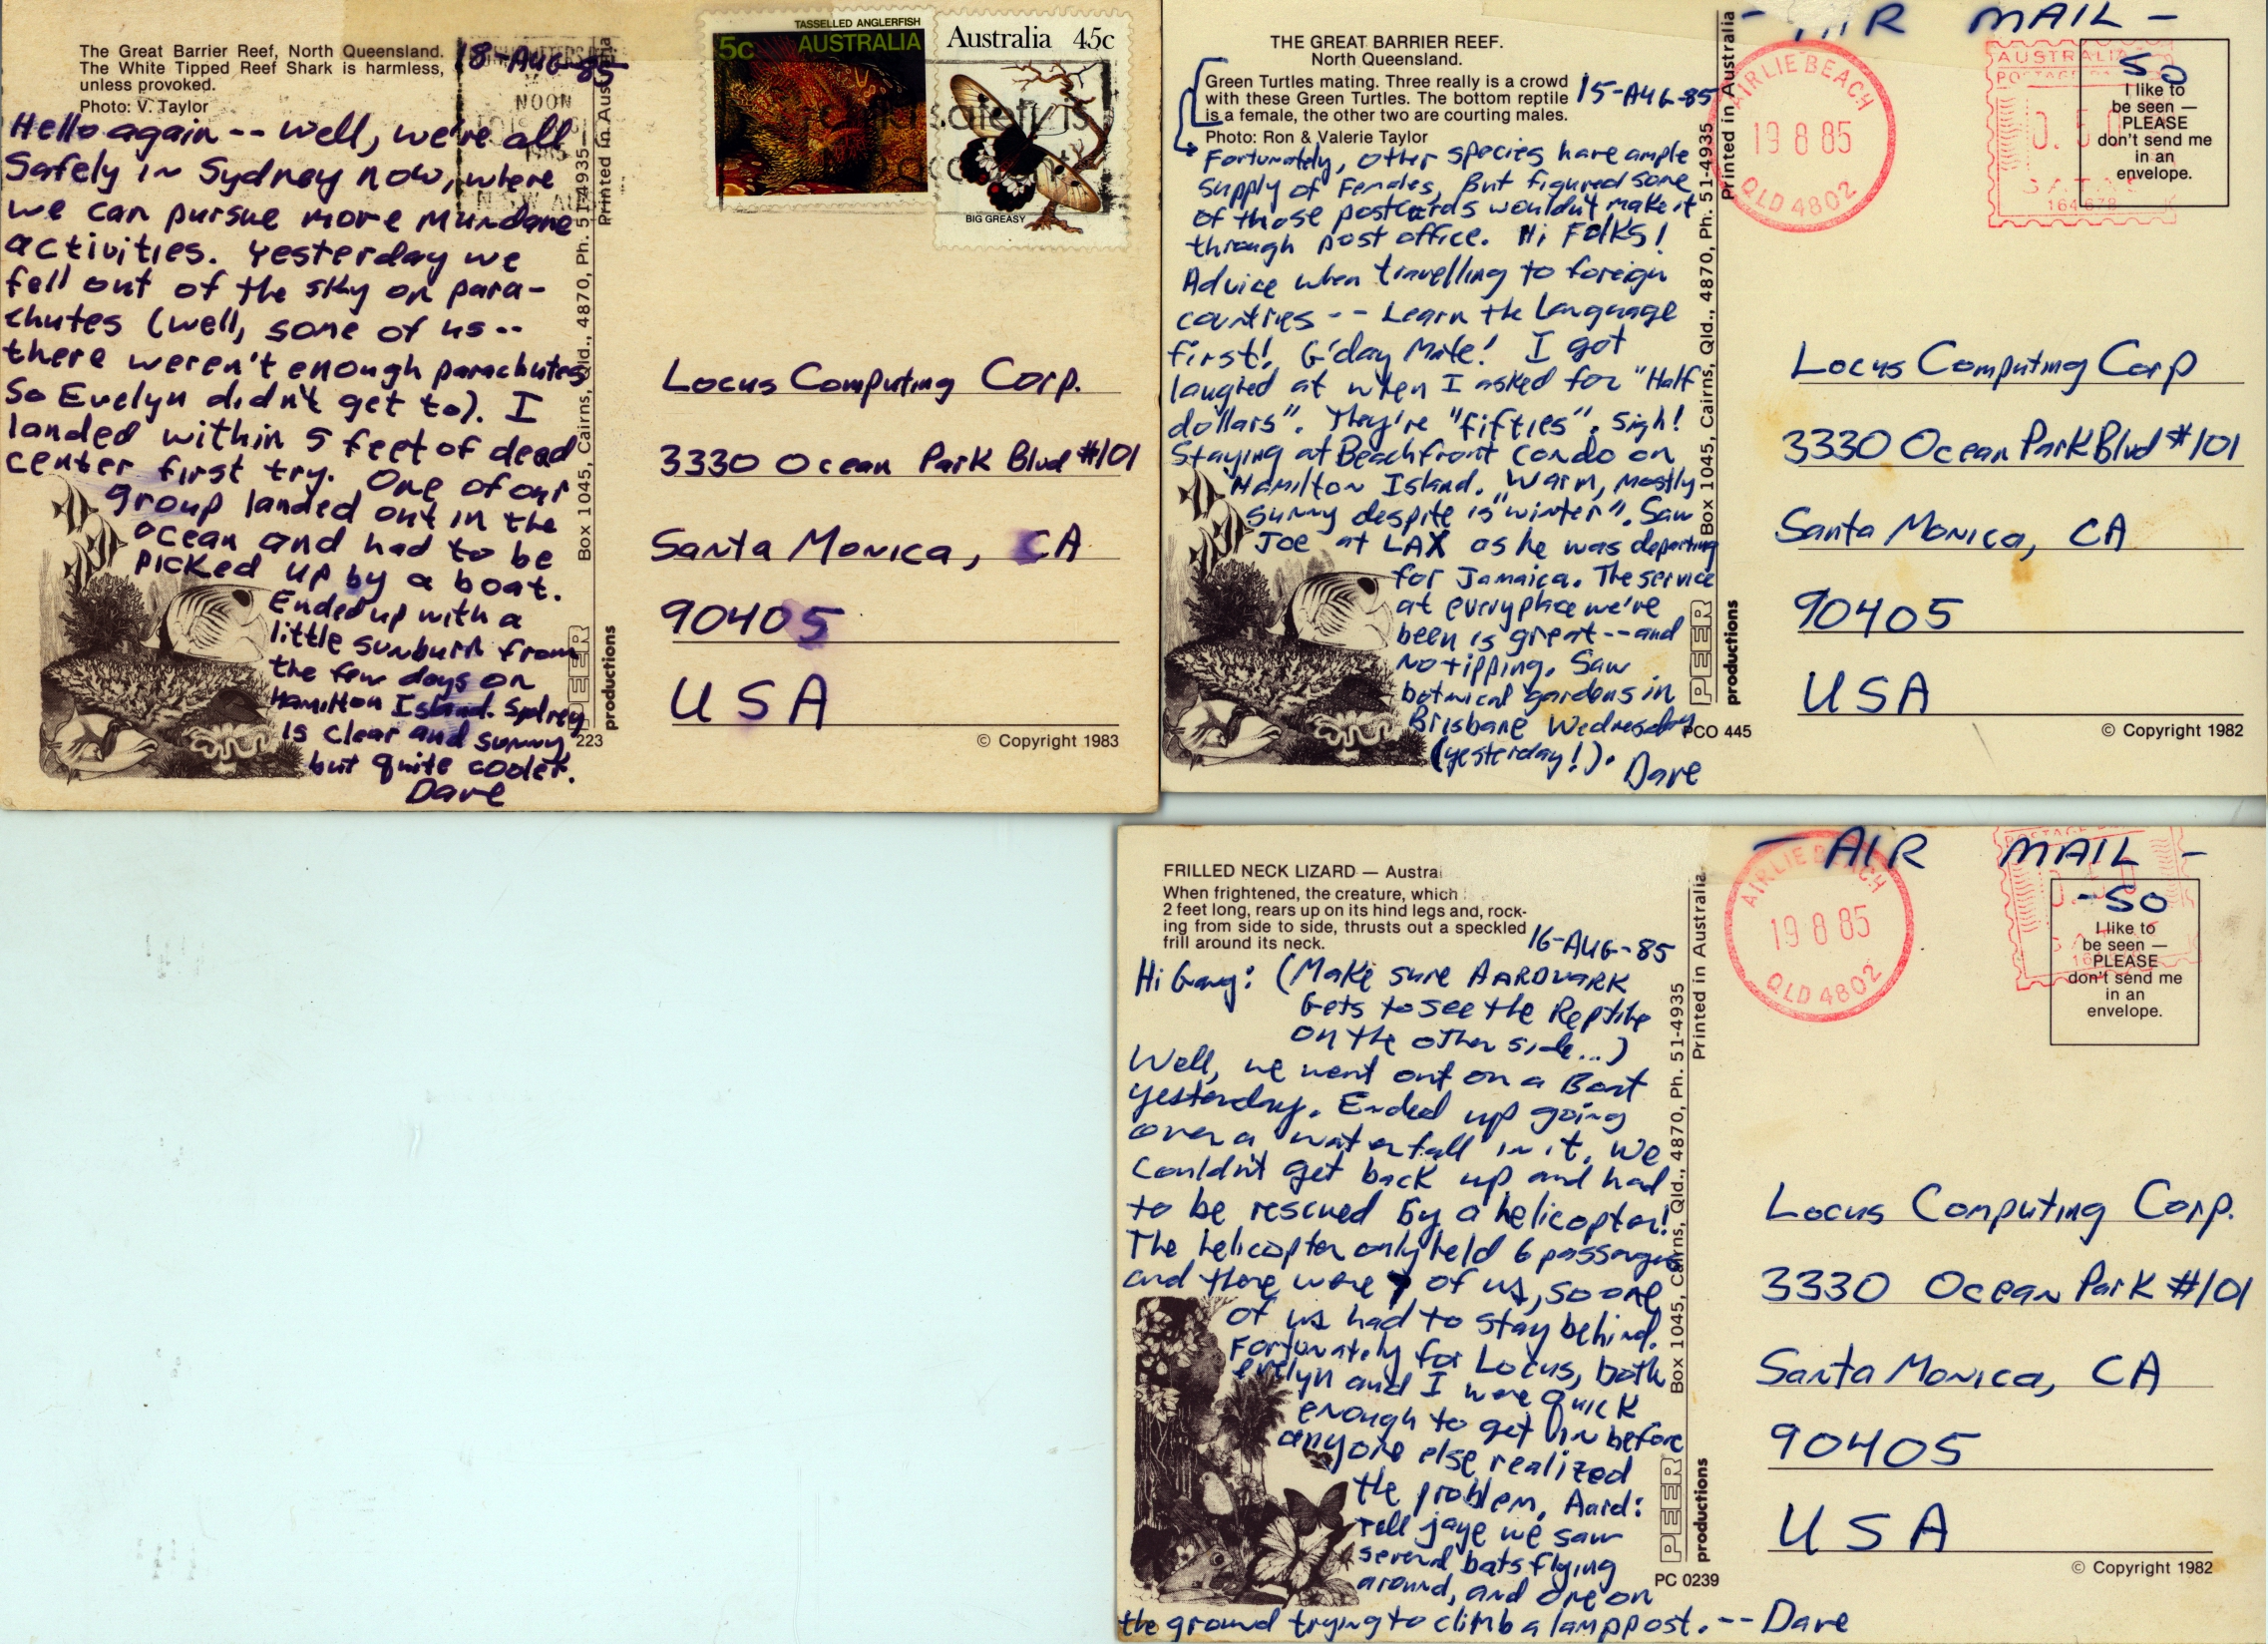 The Great Barrier Reef, North Queensland.
The White Tipped Reef Shark is harmless,
unless provoked.
Photo: V. Taylor
18-AUG-85
NOON
Hello again -- Well, we're all
Safely in Sydney now, where
we can pursue more mundane
activities. Yesterday we
fell out of the sky on para-
chutes (well, some of us --
there weren't enough parachutes
So Evelyn didn't get to). I
landed within 5 feet of dead
center first try. One of our
group landed out in the
ocean and had to be
picked up by a boat.
Ended up with a
little sunburn from
the few days on
Hamilton Island. Sydney
is clear and sunny,
but quite cooler.
Dave
Printed in Australia
Box 1045, Cairns, Qld., 4870, Ph. 51-4935
PEER
productions
223
TASSELLED ANGLERFISH
5c AUSTRALIA
Australia 45c
BIG GREASY
Locus Computing Corp.
3330 Ocean Park Blvd #101
Santa Monica, CA
90405
USA
© Copyright 1983
THE GREAT BARRIER REEF.
North Queensland.
Green Turtles mating. Three really is a crowd
with these Green Turtles. The bottom reptile
is a female, the other two are courting males.
Photo: Ron & Valerie Taylor
15-AUG-85
Fortunately, other species have ample
supply of Females, But figured some
of those postcards wouldn't make it
through post office. Hi Folks!
Advice when travelling to foreign
countries -- Learn the Language
first! G'day Mate! I got
laughed at when I asked for "Half
dollars". They're "fifties". Sigh!
Staying at Beachfront condo on
Hamilton Island. Warm, mostly
sunny despite is "winter". Saw
Joe at LAX as he was departing
for Jamaica. The service
at every place we've
been is great -- and
no tipping. Saw
botnical gardens in
Brisbane Wednesday
(yesterday!). Dave
Printed in Australia
Box 1045, Cairns, Qld., 4870, Ph. 51-4935
PEER
productions
PCO 445
- AIR MAIL -
AIRLIE BEACH
19 8 85
QLD 4802
AUSTRALIA
POSTAGE
50
I like to
be seen —
PLEASE
don't send me
in an
envelope.
Locus Computing Corp
3330 Ocean Park Blvd #101
Santa Monica, CA
90405
USA
© Copyright 1982
FRILLED NECK LIZARD — Austra
When frightened, the creature, which
2 feet long, rears up on its hind legs and, rock-
ing from side to side, thrusts out a speckled
frill around its neck.
16-AUG-85
Hi Gary: (Make sure AARDVARK
Gets to see the Reptile
on the other side...)
Well, we went out on a Boat
yesterday. Ended up going
over a waterfall in it. We
couldn't get back up and had
to be rescued by a helicopter!
The helicopter only held 6 passengers
and there were 7 of us, so one
of us had to stay behind.
Fortunately for Locus, both
Evelyn and I were quick
enough to get in before
anyone else realized
the problem. Aard:
Tell jaye we saw
several bats flying
around, and one on
the ground trying to climb a lamppost. -- Dave
Printed in Australia
Box 1045, Cairns, Qld., 4870, Ph. 51-4935
PEER
productions
PC 0239
- AIR MAIL -
AIRLIE BEACH
19 8 85
QLD 4802
-50
I like to
be seen —
PLEASE
don't send me
in an
envelope.
Locus Computing Corp.
3330 Ocean Park #101
Santa Monica, CA
90405
USA
© Copyright 1982